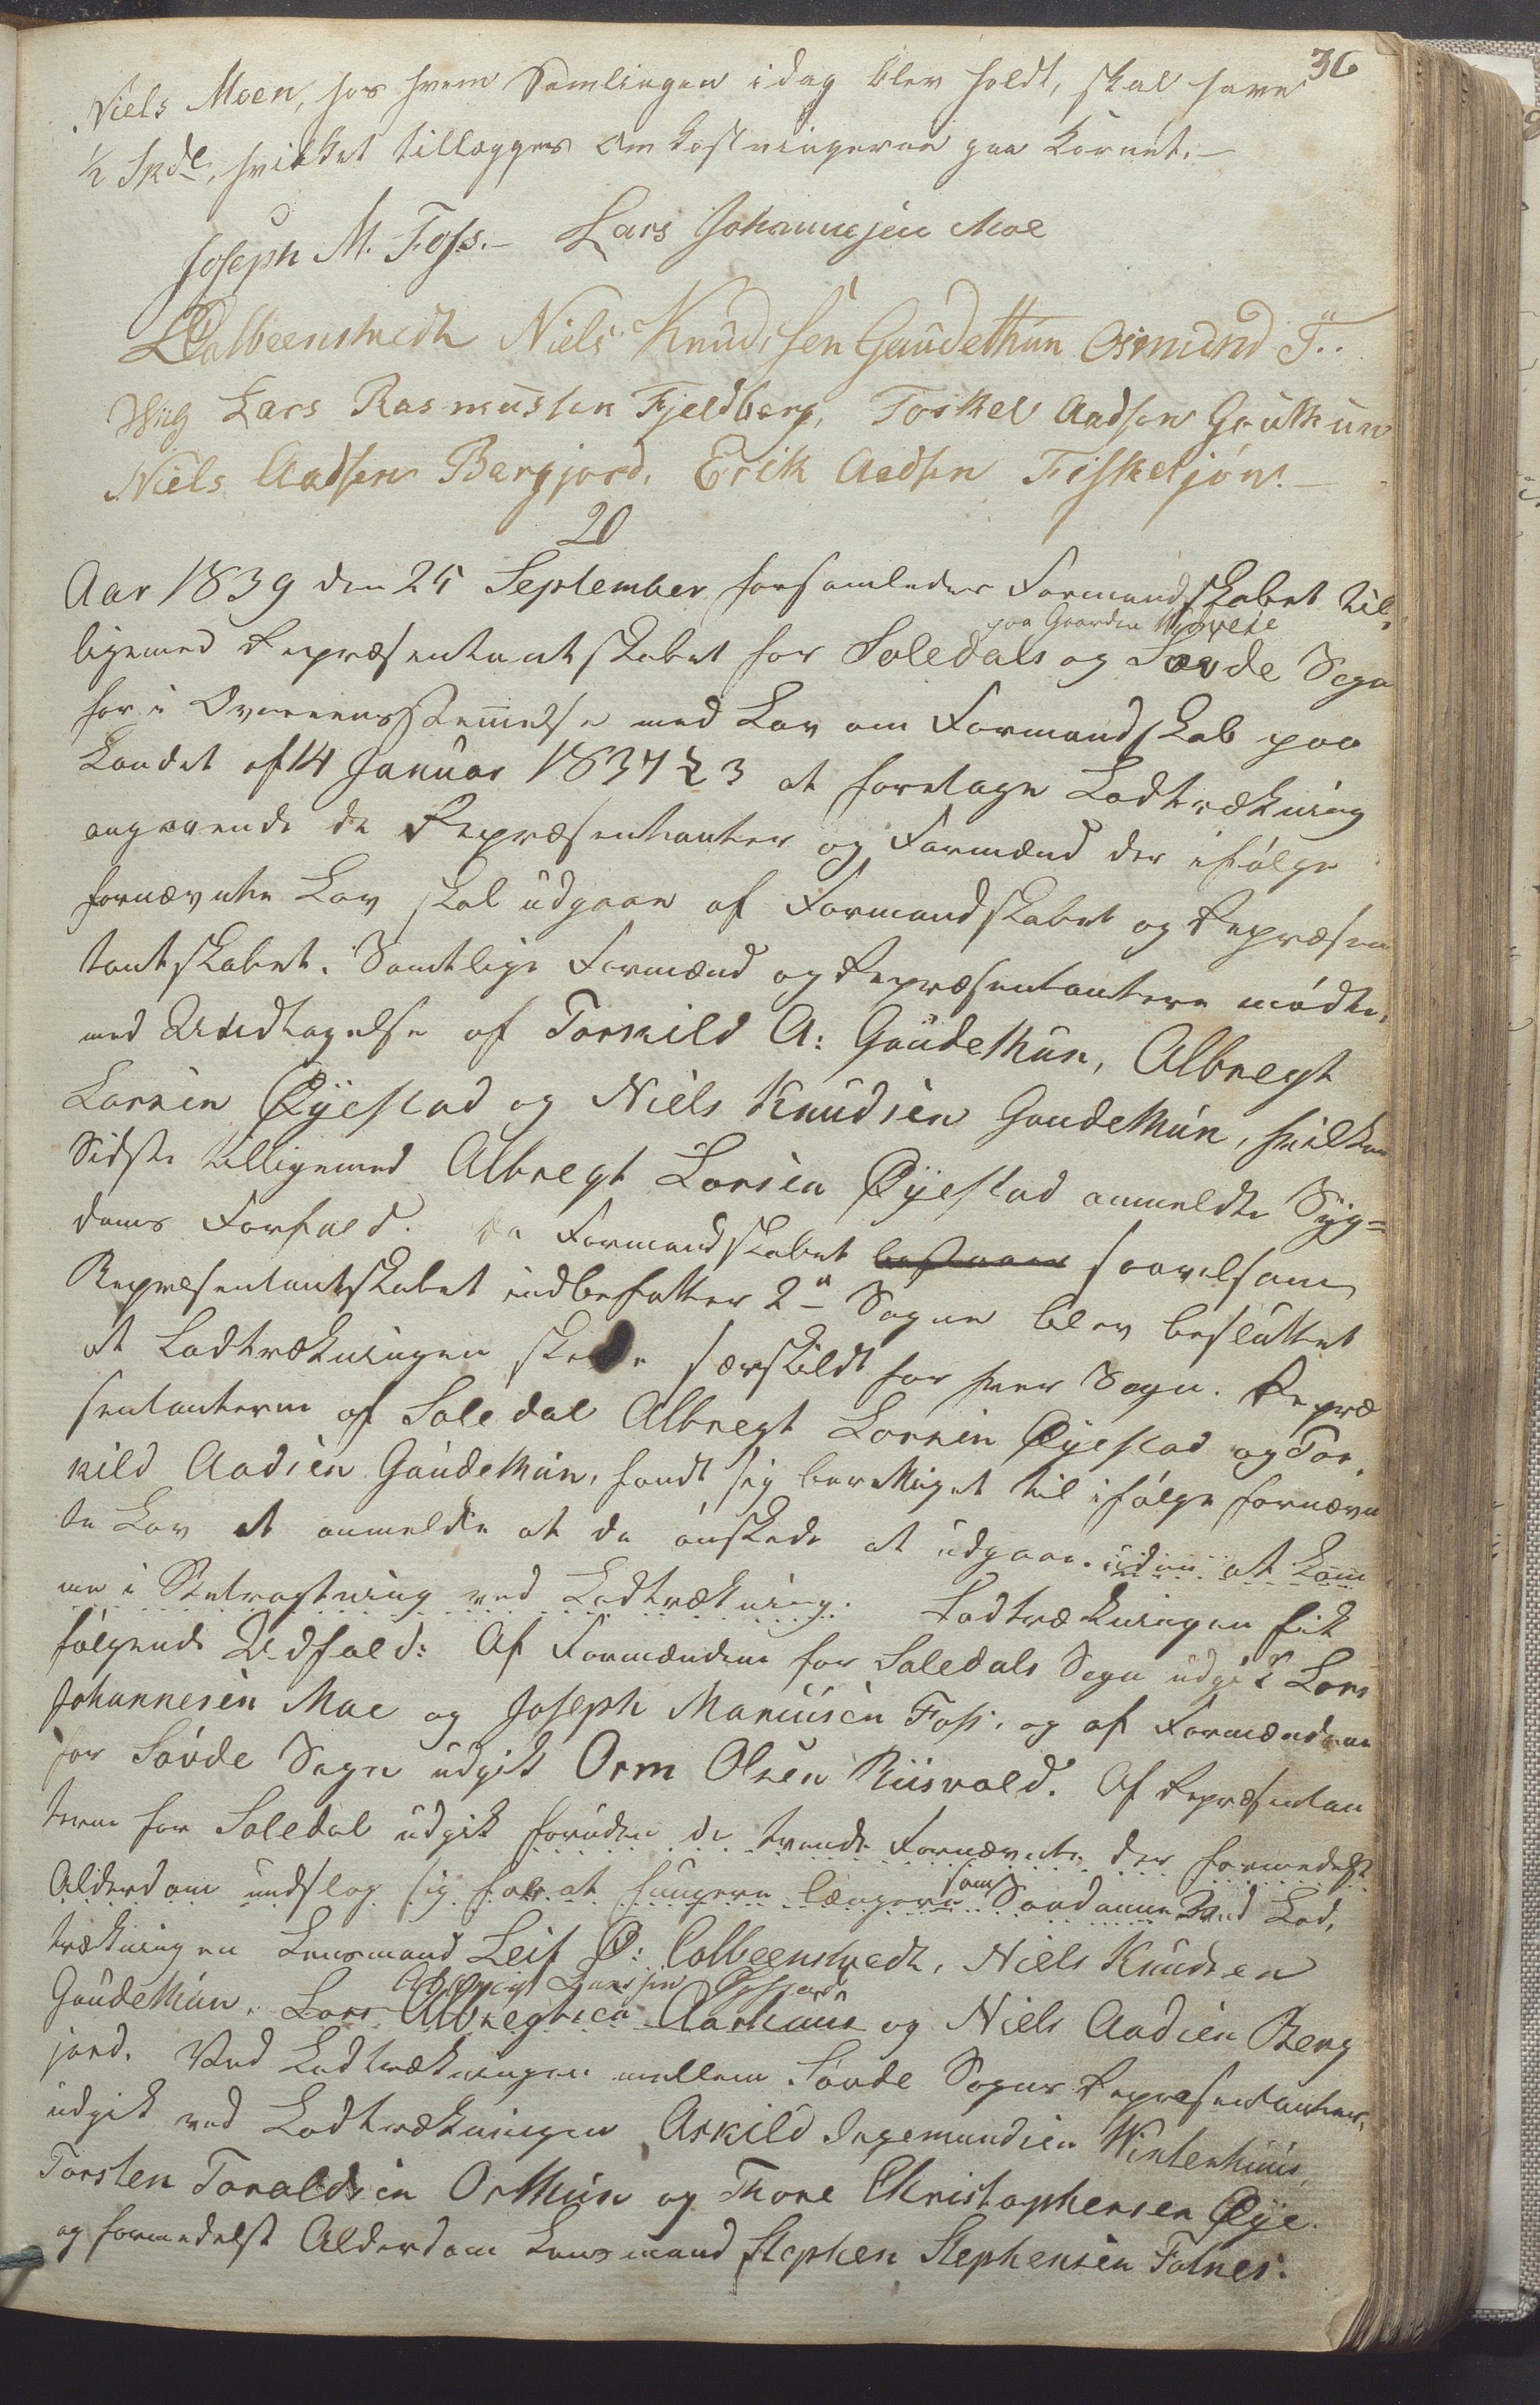 36
Niels Moen, hos hvem Samlingen idag blev holdt, skal have
½ Spdl, hvilket tillægges Omkostningerne paa Kornet.
Joseph M. Foss. Lars Johannesen Moe
Niels Knudsen Gaudethun Osmund T..
Wiig Lars Rasmussen Fjeldberg, Torkel Aadsen Gauthun
Niels Aadsen Bergjord. Erik Aadsen Fiskekjøn.
20
Aar 1839 den 25 September forsamledes Formandskabet til-
paa Gaarden
ligemed Repræsentantskabet for Soledals og Søvde Sogn
for i Overeensstemmelse med Lov om Formandskab paa
Landet af 14 Januar 1837 § 3 at foretage Lodtrækning
angaaende de Repræsentanter og Formænd der ifølge
fornævnte Lov skal udgaae af Formandskabet og Repræsen
tantskabet. Samtlige Formænd og Repræsentantere mødte,
med Undtagelse af Torkild A: Gaudethun, Albregt
Larsen Øyestad og Niels Knudsen Gaudethun, hvilken
Sidste tilligemed Albregt Larsen Øyestad anmeldte Syg=
doms Forfald. Da Formandskabet bestaaer saavelsom
Repræsentantskabet indbefatter 2de Sogne blev besluttet
at Lodtrækningen skede særskildt for hver Sogn. Repræ
sentanterne af Soledal Albregt Larsen Øyestad og Tor,
kild Aadsen Gaudethun, fandt sig berettiget til ifølge fornævn
te Lov at anmelde at de ønskede at udgaae uden at kom
me i Betragtning ved Lodtrækning. Lodtrækningen fik
følgende Udfald: Af Formændene for Soledals Sogn udgik Lars
Johannesen Moe og Joseph Mariusen Foss, og af Formændene
for Søvde Sogn udgik Orm Olsen Riisvold. Af Repræsentan
terne for Soledal udgik foruden de tvende Fornævnte der formedelst
Alderdom undslog sig for at fungere længere som Saadanne Ved Lod,
trækningen Lensmand Leif Ø: Colbeenstvedt, Niels Knudsen
Albregt Larsen
Gaudethun, Lars Albregtsen Aarhuus og Niels Aadsen Berg
jord. Ved Lodtrækningen mellem Søvde Sogns Repræsentanter,
udgik ved Lodtrækningen Askild Ingemundsen Winterhuus,
Torsten Taraldsen Orthun og Thore Christophersen Øye.
og formedelst Alderdom Lensmand Stephen Stephensen Fatnes.